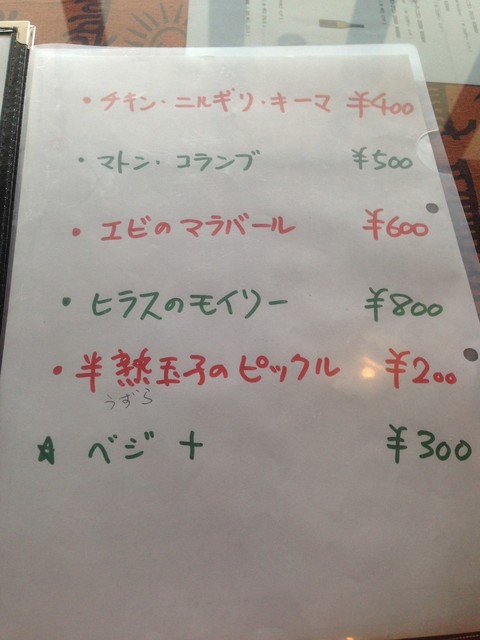 ・チキン・ニルギリ・キーマ ¥400
・マトン・コランブ ¥500
・エビのマラバール ¥600
・ヒラスのモイリー ¥800
・半熟玉子のピックル ¥200
うずら
☆ ベジ + ¥300